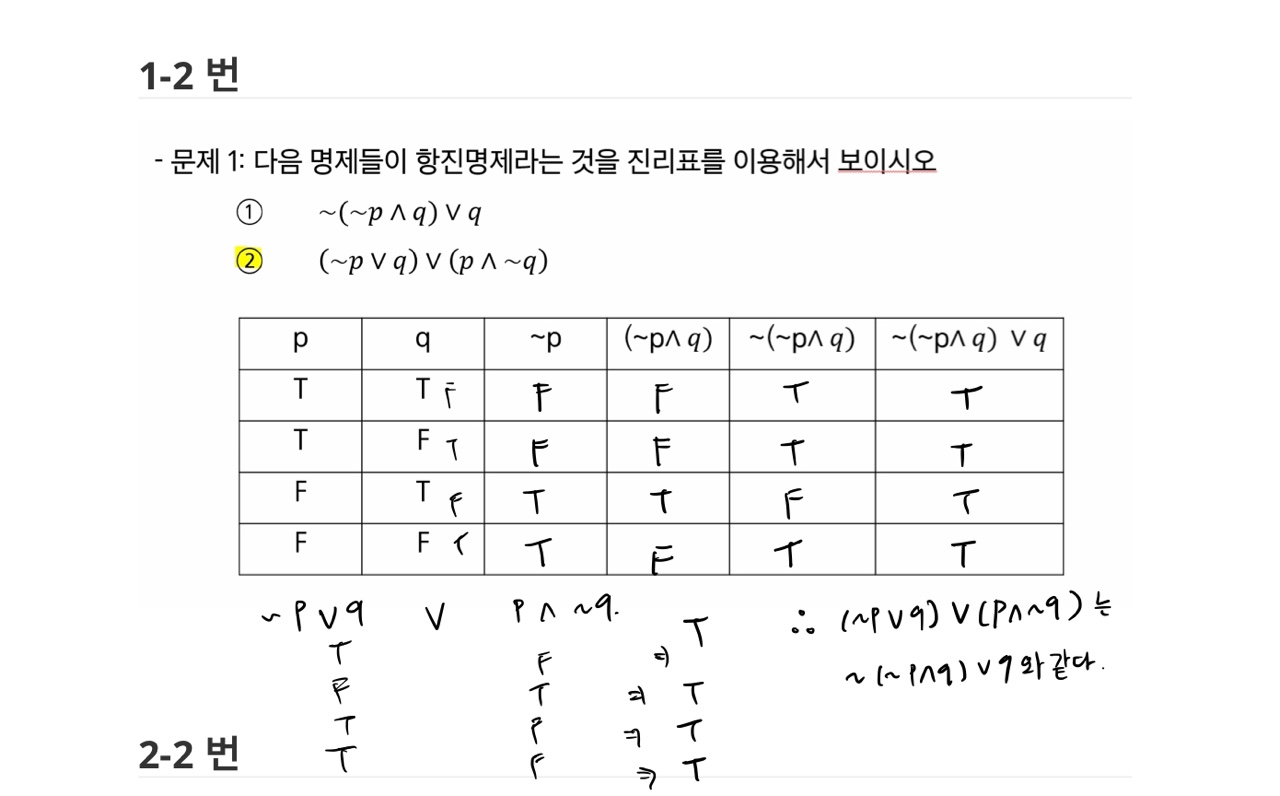 1-2 번
- 문제 1: 다음 명제들이 항진명제라는 것을 진리표를 이용해서 보이시오
① ~(~p ∧ q) ∨ q
② (~p ∨ q) ∨ (p ∧ ~q)
p q ~p (~p∧ q) ~(~p∧ q) ~(~p∧ q) ∨ q
T T F F F T T
T F T F F T T
F T F T T F T
F F T T F T T
~ P ∨ q ∨ P ∧ ~q. ∴ (~P ∨ q) ∨ (P ∧ ~q) 는
T F ⇒ T ~ (~ P ∧ q) ∨ q 와 같다.
F T ⇒ T
T F ⇒ T
T F ⇒ T
2-2 번